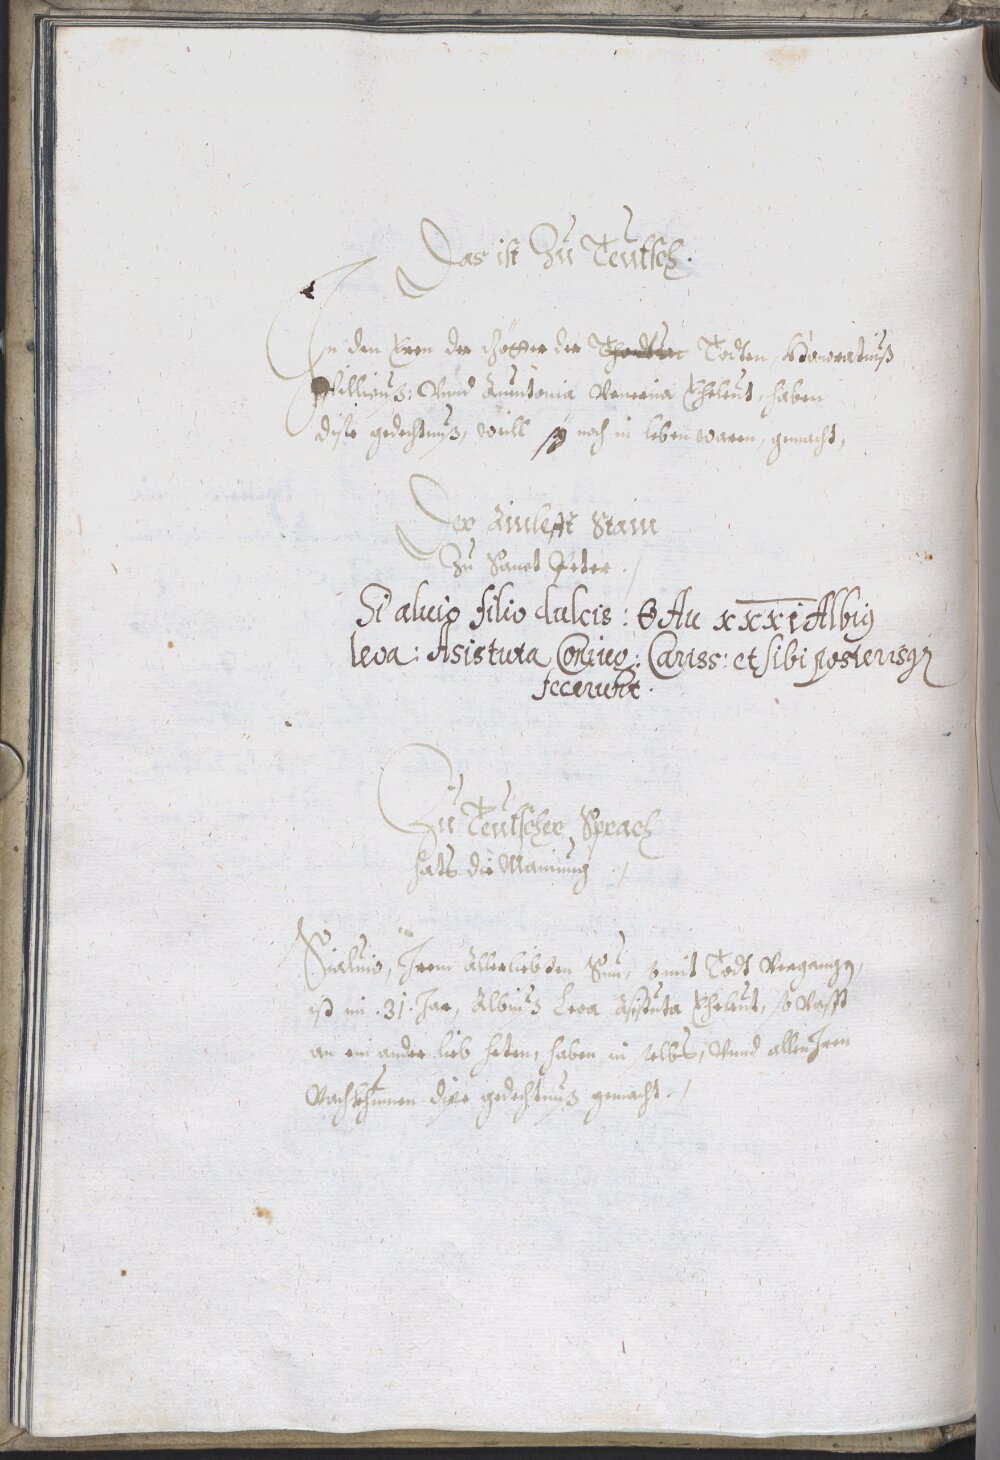 Das ist Zu Teutsch.
In den Eren der Götter der Todten, Honoratuß
Pillius: Vnnd Anntonia Veneria Eheleut, haben
dise gedechtnuß, weill sy noch in leben waren, gemacht,
Der Ainlefft Stain
Zu Sanct Peter.
Si aluio filio dulcis: O An xxxi Albi9
leoa: Asistuta Coniug: Cariss: et sibi posterisq3
fecerunt.
Zu Teutscher Sprach
hats die Mainung
Sialuio, Irem Allerliebsten Sun, so mit Todt Vergangen,
ist im .31. Jar, Albius Leoa Asistuta Eheleut, so Vasst
an ein ander lieb heten, haben in selbs, Vnnd allen Iren
Nachkhumen dise gedechtnuß gemacht.